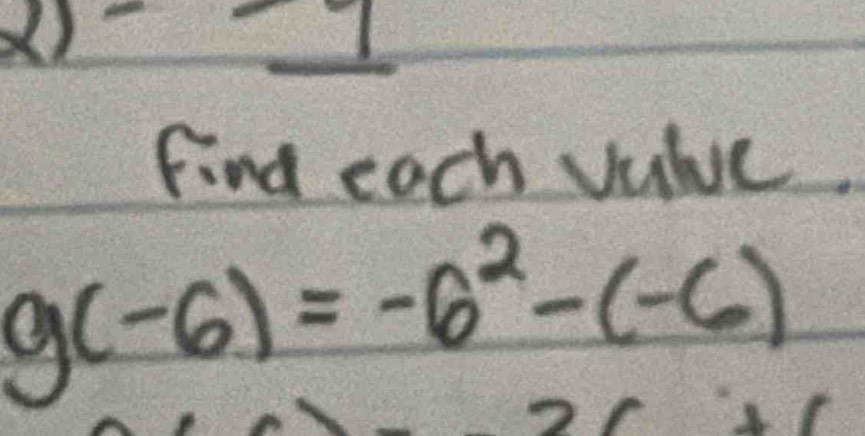 2) - -9
Find each value.
g(-6) = -6² - (-6)